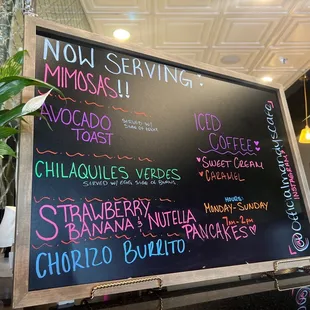 NOW SERVING:
MIMOSAS!!
AVOCADO
TOAST
SERVED W/
ICED
COFFEE
SWEET CREAM
CARAMEL
CHILAQUILES VERDES
SERVED W/ SIDE OF BEANS
STRAWBERRY
BANANA & NUTELLA
PANCAKES
HOURS:
MONDAY-SUNDAY
7AM-2PM
CHORIZO BURRITO
INSTAGRAM